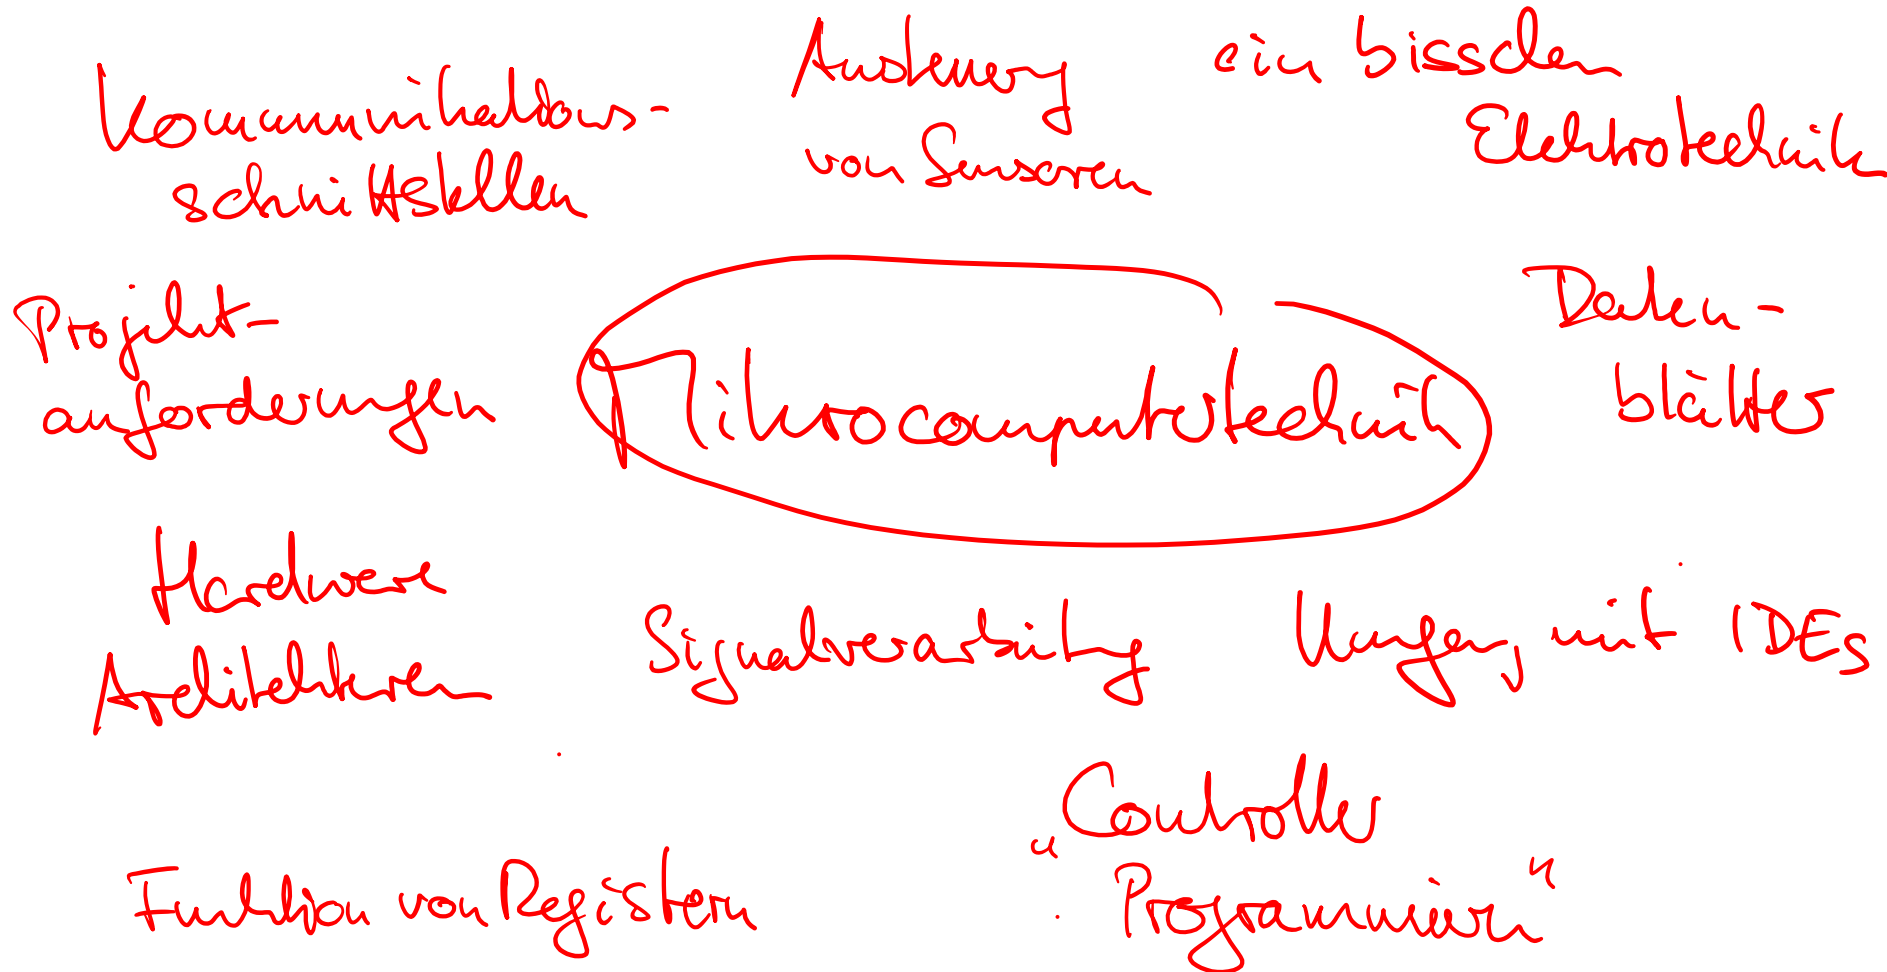 Kommunikations-
schnittstellen
Ansteuerung
von Sensoren
ein bisschen
Elektrotechnik
Projekt-
anforderungen
Mikrocomputertechnik
Daten-
blätter
Hardware
Architekturen
Signalverarbeitung
Umgang mit IDEs
Funktion von Registern
„Controller
Programmieren“